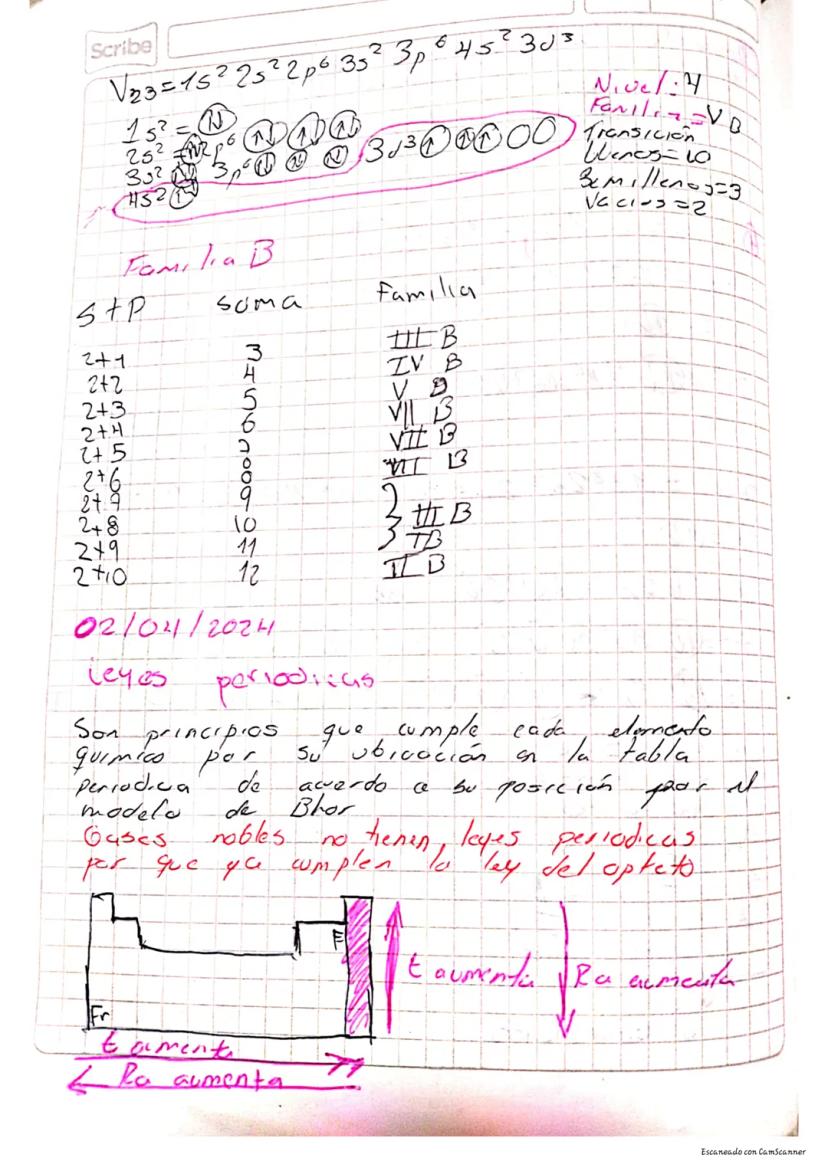 Scribe
V23=1s² 2s² 2p⁶ 3s² 3p⁶ 4s² 3d³
1s² =
2s² = 2p⁶
3s² 3p⁶ 3d³
4s²
Nivel: 4
Familia = V B
Transición
llenos=10
Semillenos=3
Vacios=2
Familia B
S+P suma Familia
2+1 3 III B
2+2 4 IV B
2+3 5 V B
2+4 6 VII B
2+5 7 VII B
2+6 8 VII B
2+7 9
2+8 10 III B
2+9 11 IB
2+10 12 II B
02/04/2024
Leyes periodicas
Son principios que cumple cada elemento
quimico por su ubicación en la tabla
periodica de acuerdo a su posición por el
modelo de Bhor
Gases nobles no tienen leyes periodicas
por que ya cumplen la ley del opteto
F
Fr
t aumenta
Ra aumenta
t aumenta
Ra aumenta
Escaneado con CamScanner